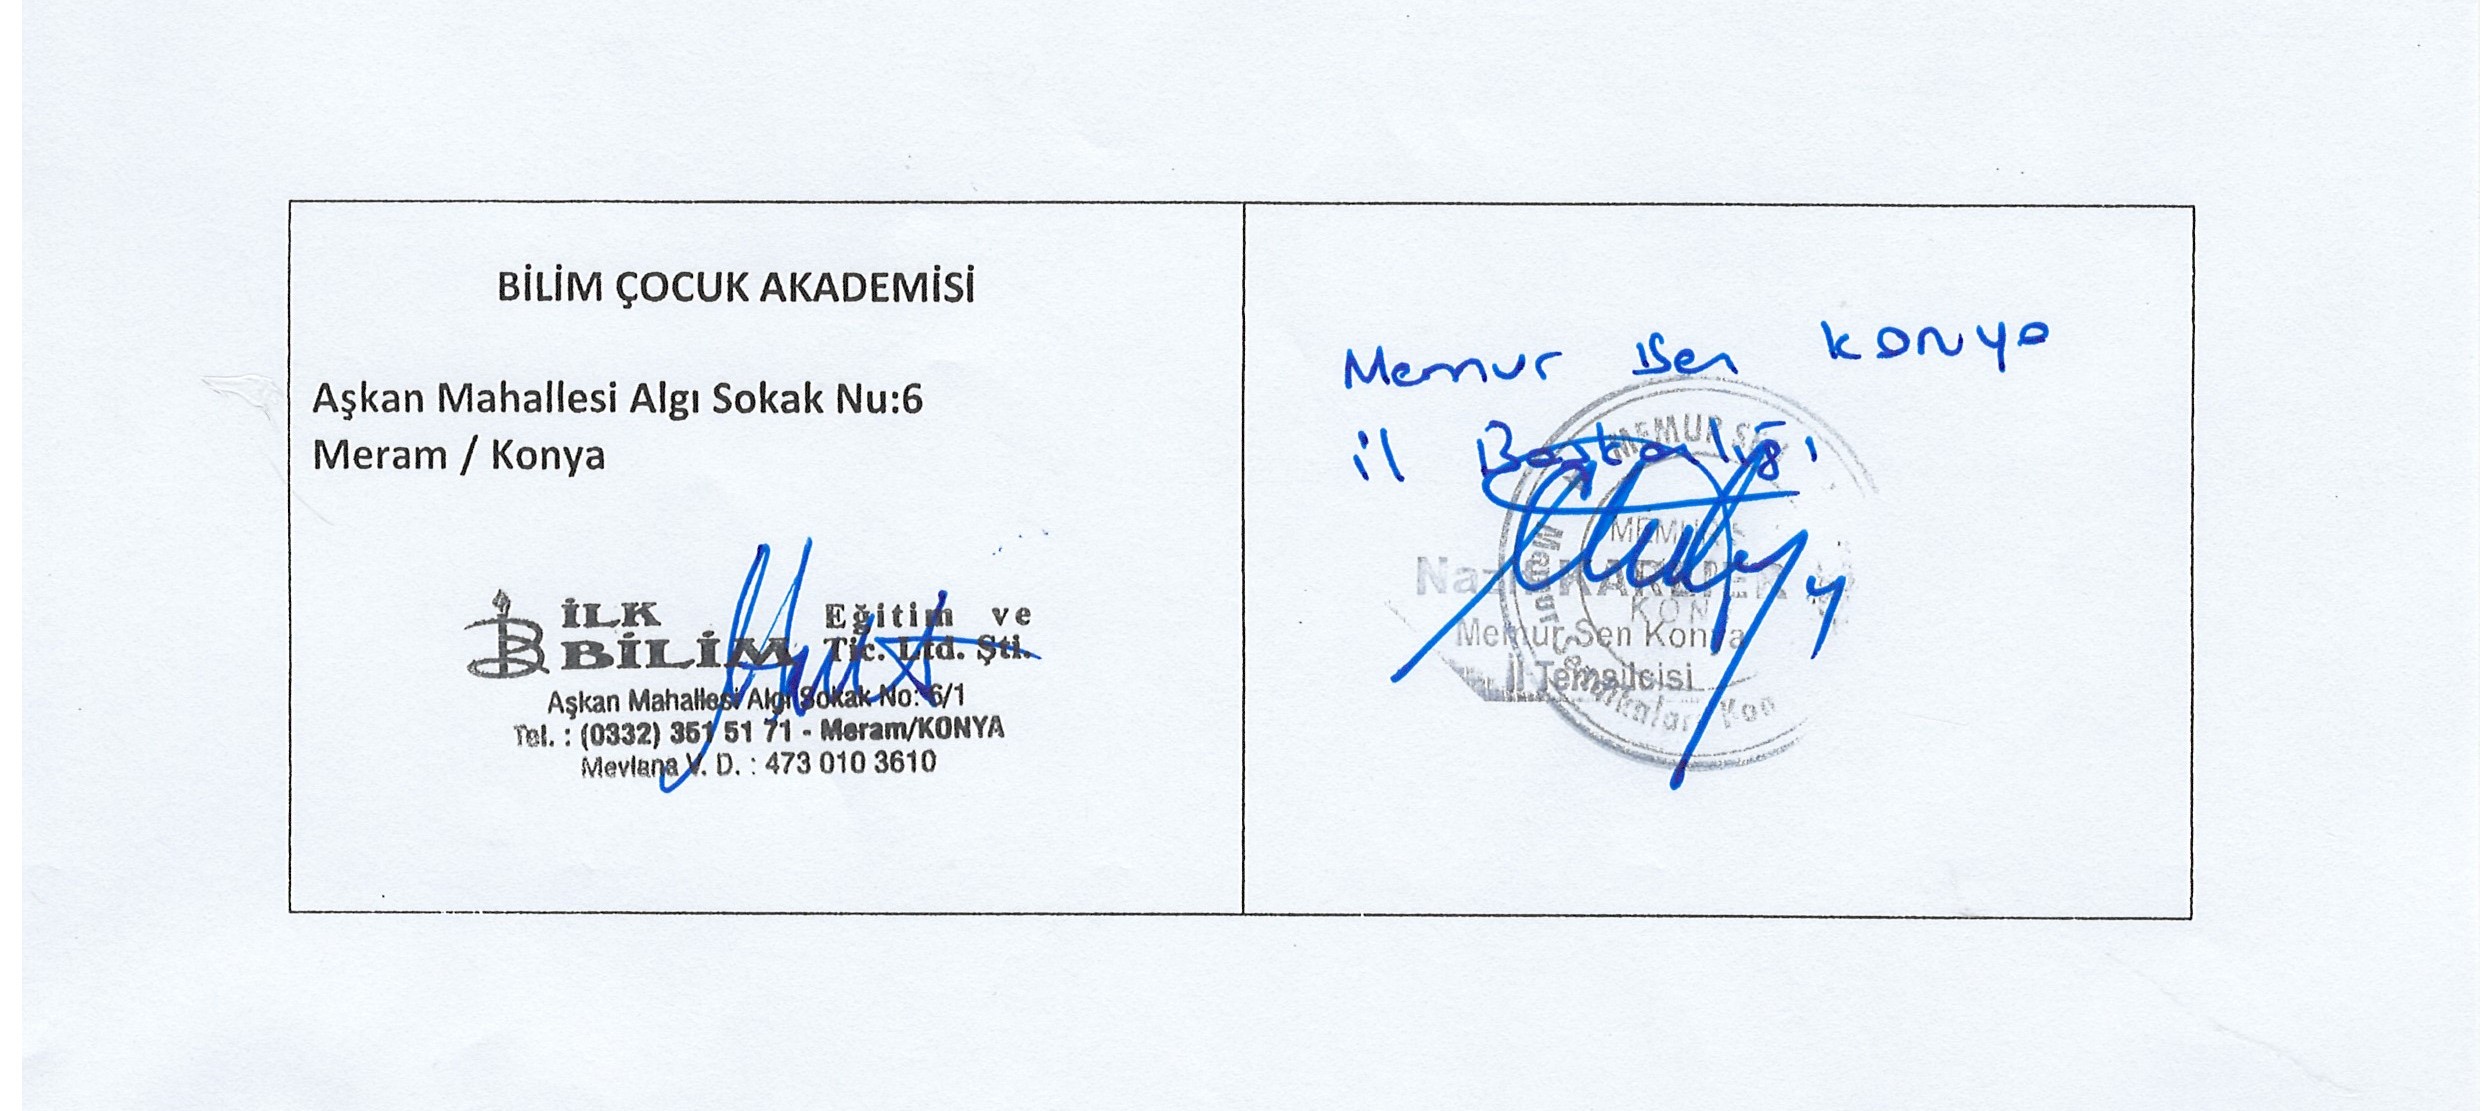 BİLİM ÇOCUK AKADEMİSİ
Aşkan Mahallesi Algı Sokak Nu:6
Meram / Konya
İLK BİLİM Eğitim ve Tic. Ltd. Şti.
Aşkan Mahallesi Algı Sokak No: 6/1
Tel. : (0332) 351 51 71 - Meram/KONYA
Mevlana V. D. : 473 010 3610
Memur Sen Konya
il Başkanlığı
MEMUR SEN
Memur Sen Konya
İl Temsilcisi